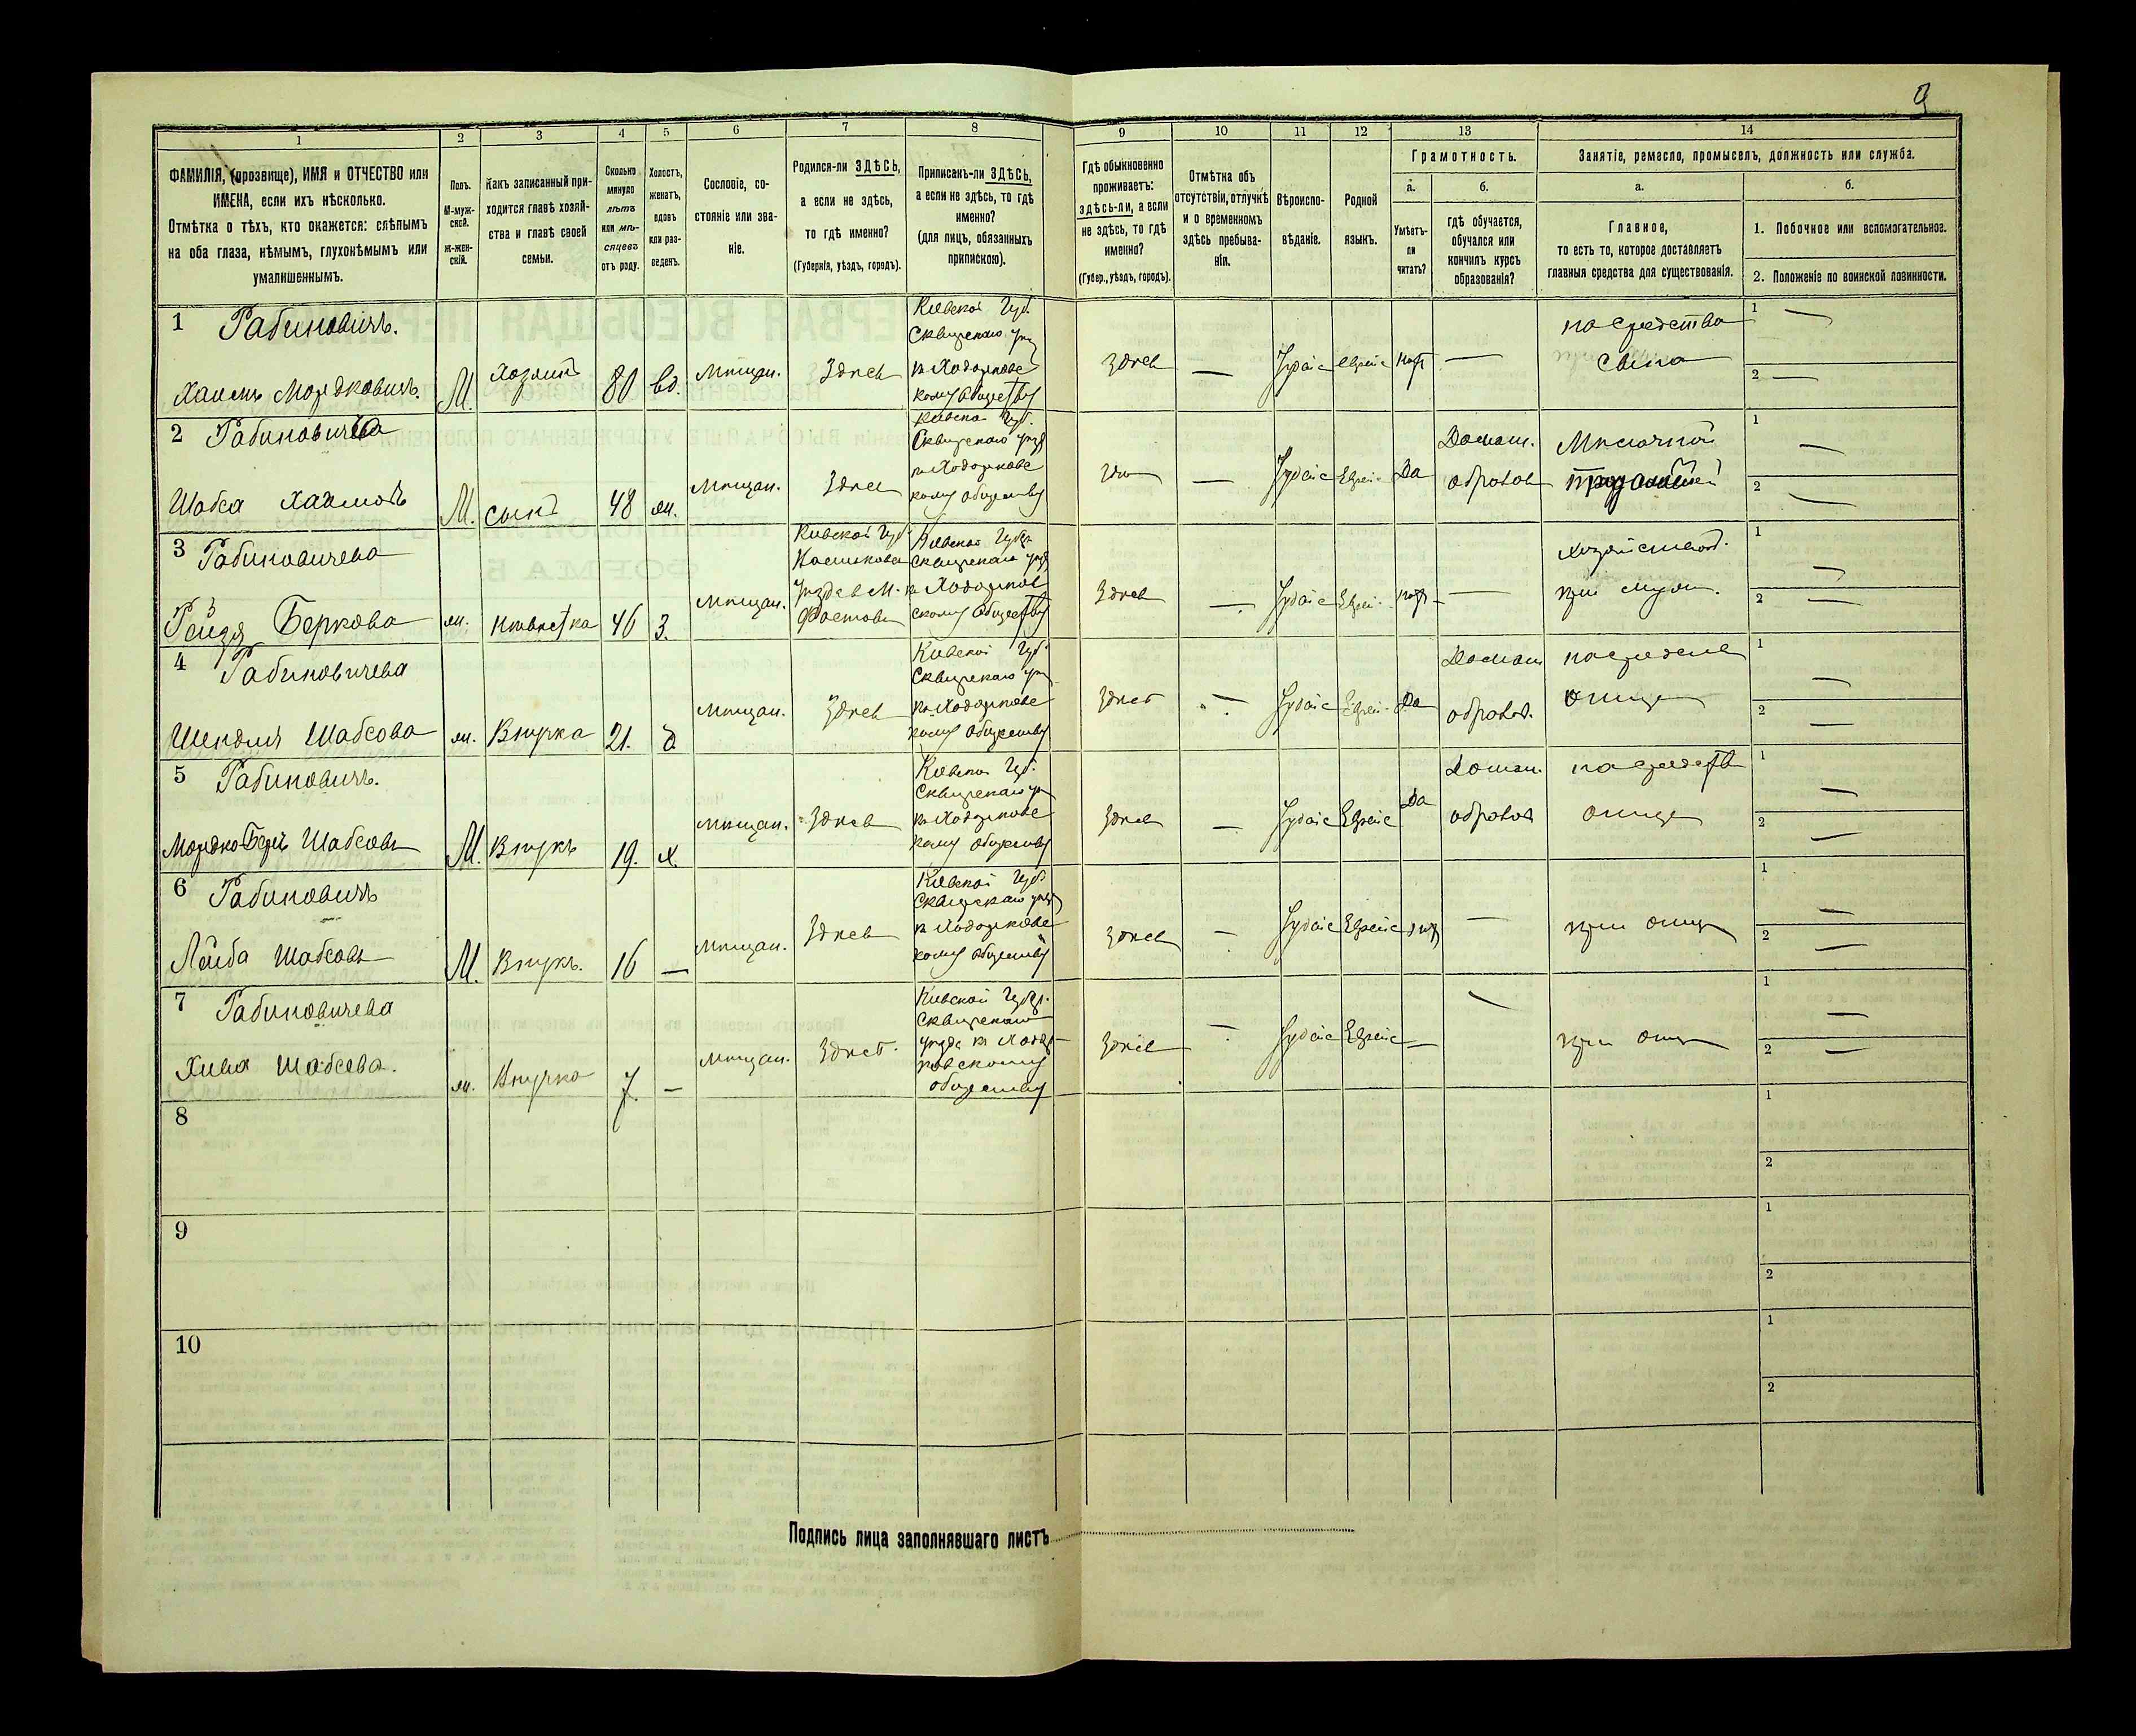 9
1 2 3 4 5 6 7 8 9 10 11 12 13 14
ФАМИЛІЯ, (прозвище), ИМЯ и ОТЧЕСТВО или
ИМЕНА, если ихъ нѣсколько.
Отмѣтка о тѣхъ, кто окажется: слѣпымъ
на оба глаза, нѣмымъ, глухонѣмымъ или
умалишеннымъ.
Полъ.
М-муж-
ской.
Ж-жен-
скій.
Какъ записанный при-
ходится главѣ хозяй-
ства и главѣ своей
семьи.
Сколько
минуло
лѣтъ
или мѣ-
сяцевъ
отъ роду.
Холостъ,
женатъ,
вдовъ
или раз-
веденъ.
Сословіе, со-
стояніе или зва-
ніе.
Родился-ли ЗДѢСЬ,
а если не здѣсь,
то гдѣ именно?
(Губернія, уѣздъ, городъ).
Приписанъ-ли ЗДѢСЬ,
а если не здѣсь, то гдѣ
именно?
(для лицъ, обязанныхъ
припискою).
Гдѣ обыкновенно
проживаетъ:
здѣсь-ли, а если
не здѣсь, то гдѣ
именно?
(Губер., уѣздъ, городъ).
Отмѣтка объ
отсутствіи, отлучкѣ
и о временномъ
здѣсь пребыва-
ніи.
Вѣроиспо-
вѣданіе.
Родной
языкъ.
Грамотность.
а.
Умѣетъ-
ли
читать?
б.
гдѣ обучается,
обучался или
кончилъ курсъ
образованія?
Занятіе, ремесло, промыселъ, должность или служба.
а.
Главное,
то есть то, которое доставляетъ
главныя средства для существованія.
б.
1. Побочное или вспомогательное.
2. Положеніе по воинской повинности.
1 Рабиновичъ.
Хаимъ Мордковичъ. М. Хозяинъ 80 вд. Мѣщан. Здѣсь
Кіевской Губ.
Сквирскаго уѣз
къ Ходорковс
кому обществу
Здѣсь — Іудейс Еврейс нѣтъ —
на средства
сына
1 —
2 —
2 Рабиновичъ
Шабса Хаимовъ М. сынъ 48 ж. Мѣщан. Здѣсь
Кіевской Губ.
Сквирскаго уѣзд
къ Ходорковс
кому обществу
— Іудейс Еврей. Да
Домаш.
образов
Мѣлочной
1 —
2 —
3 Рабиновичева
Рейзя Беркова ж. невѣстка 46 З. Мѣщан.
Кіевской Губ.
Васильковс
Уѣзда в М.
Фастовѣ
Кіевской Губер.
Сквирскаго уѣзд
къ Ходорков
скому обществу
Здѣсь — Іудейс Еврей. нѣтъ —
при мужѣ.
1 —
2 —
4 Рабиновичева
Шейндля Шабсова ж. Внучка 21. д. Мѣщан. Здѣсь
Кіевской Губ.
Сквирскаго уѣз
къ Ходорковс
кому обществу
Здѣсь — Іудейс Еврей. Да
Домаш
образов.
на средства
отца
1 —
2 —
5 Рабиновичъ.
Мордко-Беръ Шабсовъ М. Внукъ 19. х. Мѣщан. Здѣсь
Кіевской Губ.
Сквирскаго уѣз
къ Ходорковс
кому обществу
Здѣсь — Іудейс Еврейс Да
Домаш.
образов
на средств
отца
1 —
2 —
6 Рабиновичъ
Лейба Шабсовъ М. Внукъ. 16 — Мѣщан. Здѣсь
Кіевской Губ.
Сквирскаго уѣзд
къ Ходорковс
кому обществу
Здѣсь — Іудейс Еврейс нѣтъ — при отцѣ
1 —
2 —
7 Рабиновичева
Хива Шабсова. ж. Внучка 7. — Мѣщан. Здѣсь.
Кіевской Губер.
Сквирскаго
уѣзда къ Ходор-
ковскому
обществу
Здѣсь — Іудейс Еврейс — — при отцѣ
1 —
2 —
8
1
2
9
1
2
10
1
2
Подпись лица заполнявшаго листъ